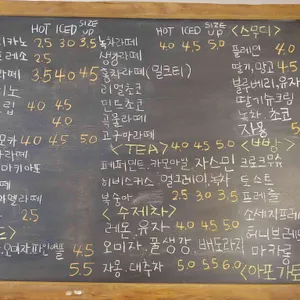 HOT ICED SIZE UP
카노 2.5 3.0 3.5
프레소 2.5
라떼 3.5 4.0 4.5
치노
립 4.0 4.5
4.0
모카 4.0 4.5 5.0
라떼
마키아토
떼
와라떼
2.5
오미자,파인애플 4.5
5.5
HOT ICED SIZE UP
녹차라떼 4.0 4.5 5.0
생강라떼
홍차라떼(밀크티)
리얼초코
민트초코
곡물라떼
고구마라떼
<TEA> 4.0 4.5 5.0
페퍼민트, 카모마일, 자스민
히비스커스, 얼그레이, 녹차
복숭아 2.5 3.0 3.5
<수제차>
레몬, 유자 4.0 4.5 5.0
오미자, 꿀생강, 배도라지
자몽, 대추차 5.0 5.5 6.0
<스무디>
플레인 4.0
딸기, 망고 4.5
블루베리, 유자
딸기슈크림
녹차, 초코
자몽 5.
크로크무슈
토스트
프레즐
소세지프레
허니브레
마카롱
<아포가토